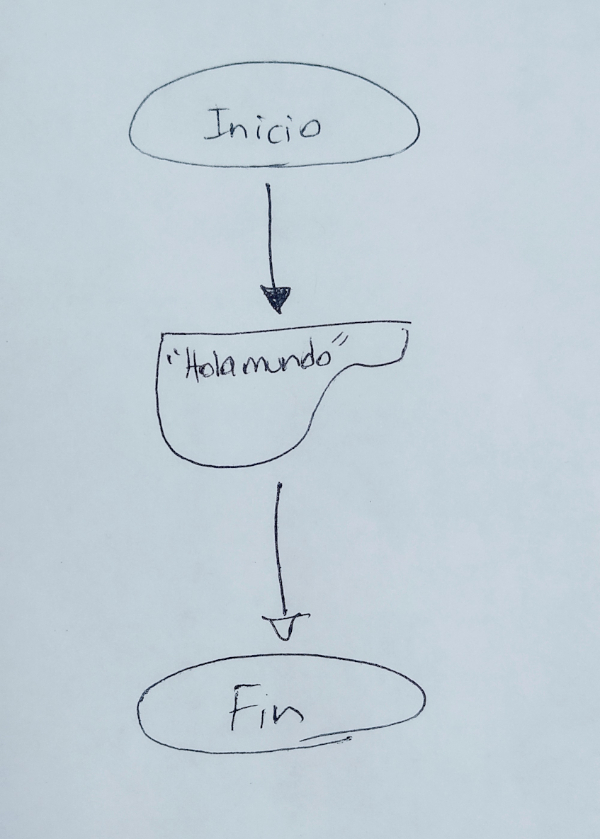 Inicio
"Hola mundo"
Fin